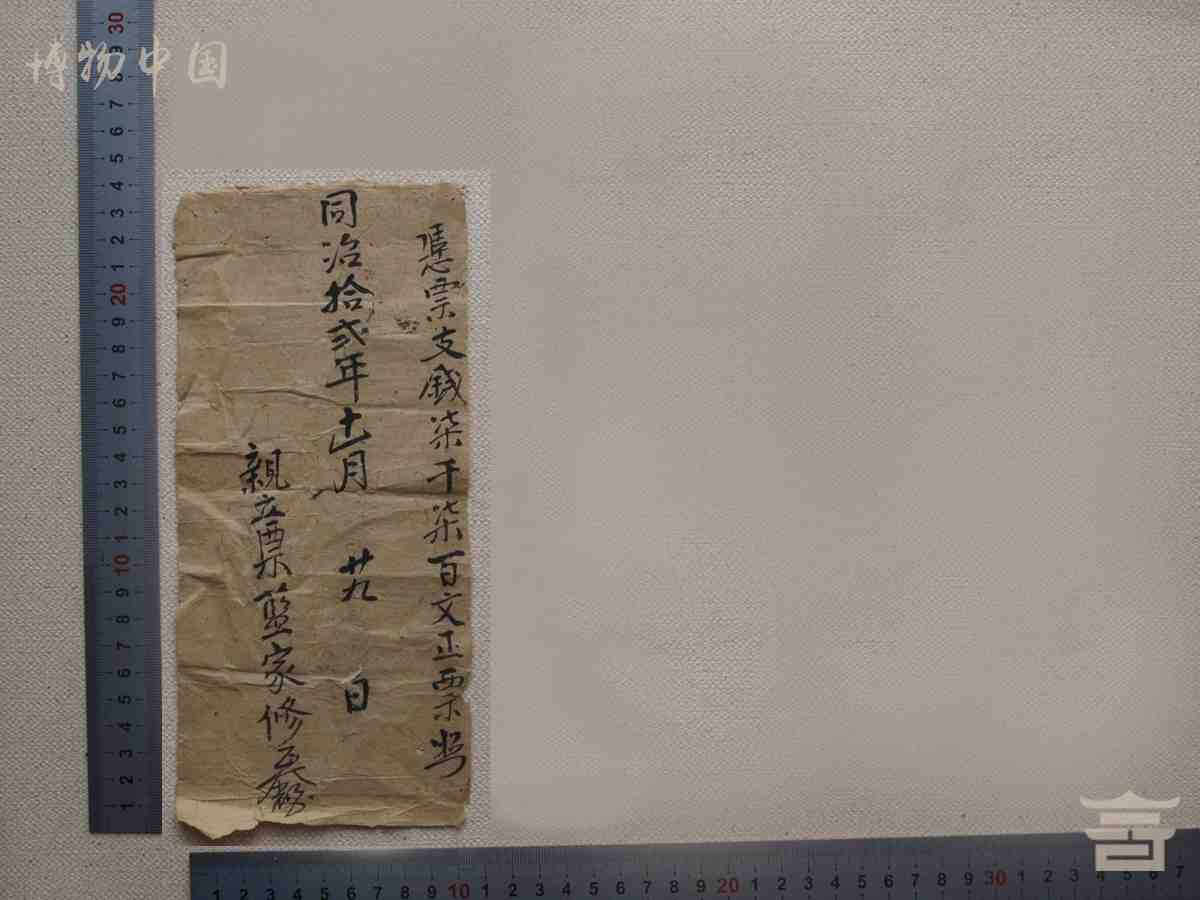 憑票支錢柒千柒百文正票照
同治拾弍年十一月 廿九 日
親立票藍家修
博物中国